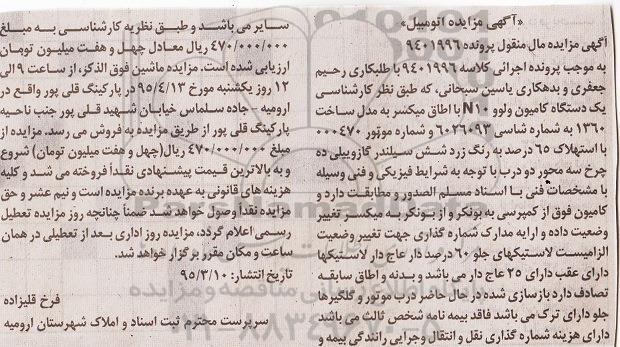 «آگهی مزایده اتومبیل»
آگهی مزایده مال منقول پرونده ۹۴۰۱۹۹۶
به موجب پرونده اجرائی کلاسه ۹۴۰۱۹۹۶ با طلبکاری رحیم
جعفری و بدهکاری یاسین سبحانی، که طبق نظر کارشناسی
یک دستگاه کامیون ولوو N۱۰ با اطاق میکسر به مدل ساخت
۱۳۶۰ به شماره شاسی ۶۰۲۶۰۹۳ و شماره موتور ۰۰۰۴۷۰
با استهلاک ۶۵ درصد به رنگ زرد شش سیلندر گازوییلی ده
چرخ سه محور دو درب با توجه به شرایط فیزیکی و فنی وسیله
با مشخصات فنی با اسناد مسلم الصدور و مطابقت دارد و
کامیون فوق از کمپرسی به بونکر و از بونکر به میکسر تغییر
وضعیت داده و ارایه مدارک شماره گذاری جهت تغییر وضعیت
الزامیست لاستیکهای جلو ۶۰ درصد دار عاج دار لاستیکها
دارای عقب دارای ۲۵ عاج دار می باشد و بدنه و اطاق سابقه
تصادف دارد بازسازی شده در حال حاضر درب موتور و گلگیرها
جلو دارای ترک می باشد فاقد بیمه نامه شخص ثالث می باشد
دارای هزینه شماره گذاری نقل و انتقال وجرایی رانندگی بیمه و
سایر می باشد و طبق نظریه کارشناسی به مبلغ
۴۷۰/۰۰۰/۰۰۰ ریال معادل چهل و هفت میلیون تومان
ارزیابی شده است. مزایده ماشین فوق الذکر، از ساعت ۹ الی
۱۲ روز یکشنبه مورخ ۹۵/۴/۱۳ در پارکینگ قلی پور واقع در
ارومیه - جاده سلماس خیابان شهید قلی پور جنب ناحیه
پارکینگ قلی پور از طریق مزایده به فروش می رسد. مزایده از
مبلغ ۴۷۰/۰۰۰/۰۰۰ ریال(چهل و هفت میلیون تومان) شروع
و به بالاترین قیمت پیشنهادی نقداً فروخته می شد و کلیه
هزینه های قانونی به عهده برنده مزایده است و نیم عشر و حق
مزایده نقداً وصول خواهد شد ضمناً چنانچه روز مزایده تعطیل
رسمی اعلام گردد، مزایده روز اداری بعد از تعطیلی در همان
ساعت و مکان مقرر برگزار خواهد شد.
تاریخ انتشار: ۹۵/۳/۱۰
فرخ قلیزاده
سرپرست محترم ثبت اسناد و املاک شهرستان ارومیه
ParsNamadData
پایگاه اطلاع رسانی مناقصه و مزایده